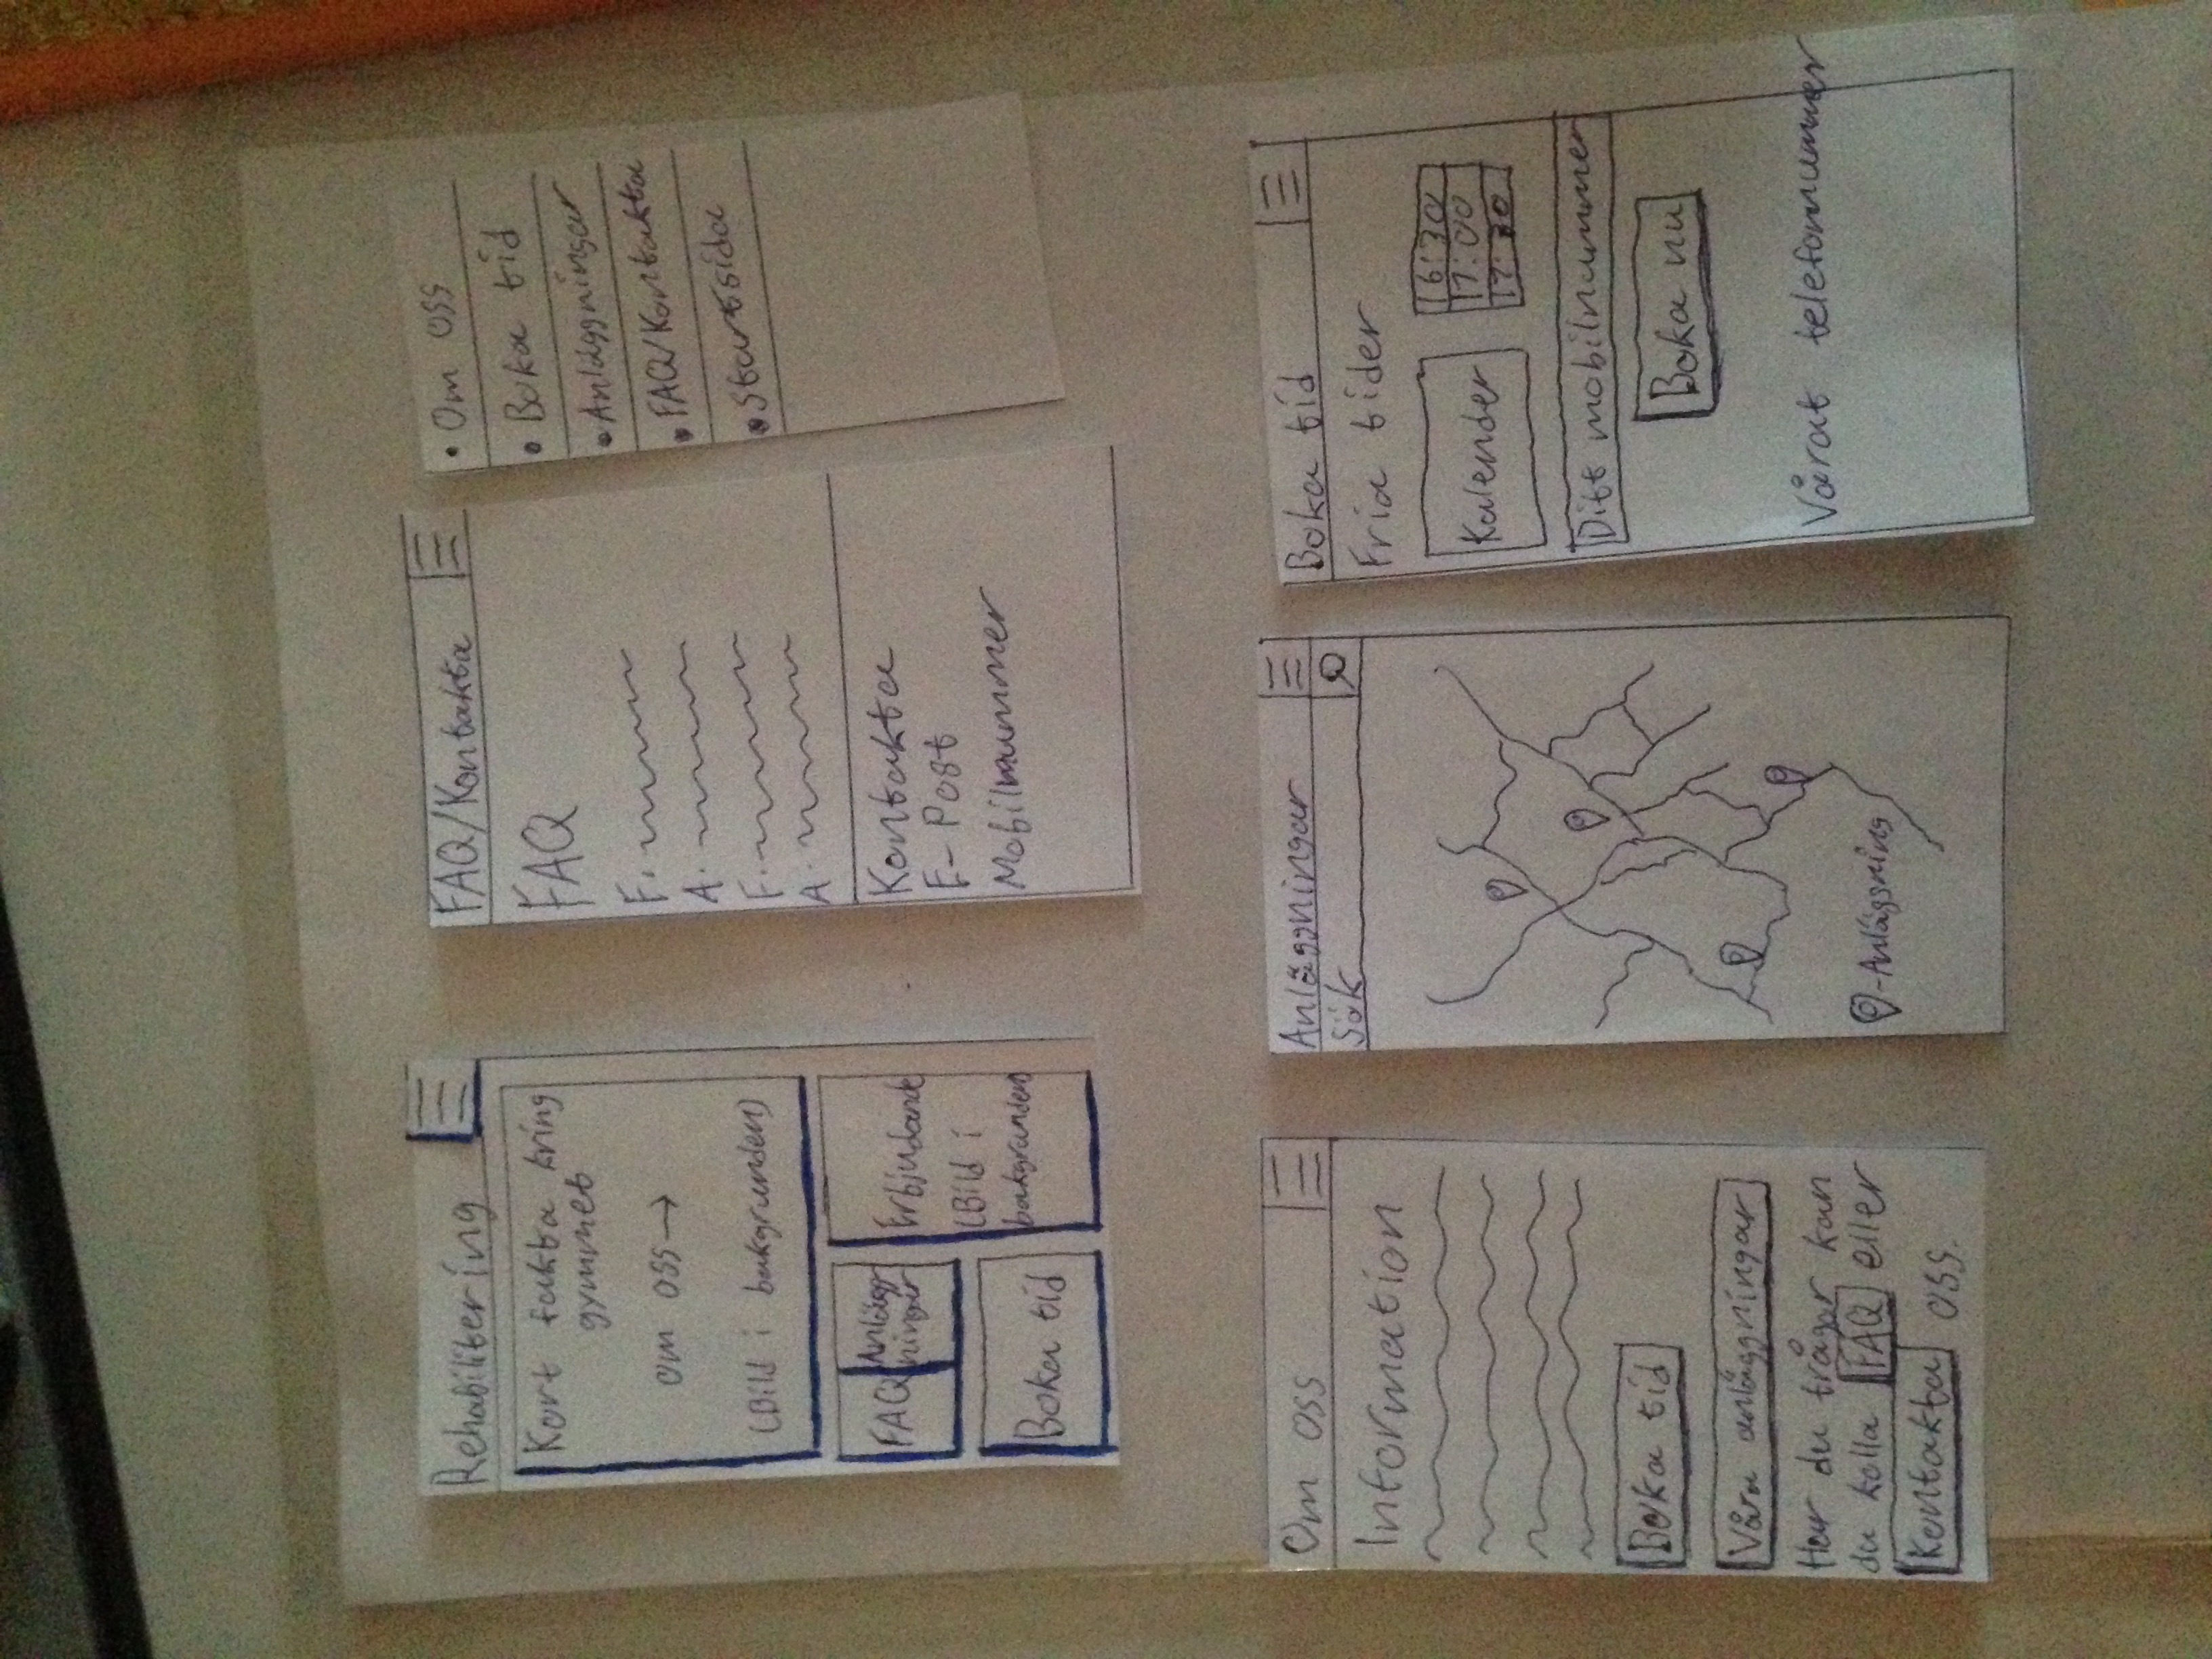 Rehabilitering
Kort fakta kring
gymmet
om oss→
(Bild i bakgrunden)
FAQ
Anlägg-
ningar
Boka tid
Erbjudande
(Bild i
bakgrunden)
FAQ/Kontakta
FAQ
F.
A.
F.
A.
Kontakta
E-Post
Mobilnummer
• Om oss
• Boka tid
• Anläggningar
• FAQ/Kontakta
• Startsida
Om oss
Information
Boka tid
Våra anläggningar
Har du frågor kan
du kolla FAQ eller
Kontakta oss.
Anläggningar
Sök
-Anläggning
Boka tid
Fria tider
Kalender
16:30
17:00
17:30
Ditt mobilnummer
Boka nu
Vårat telefonnummer